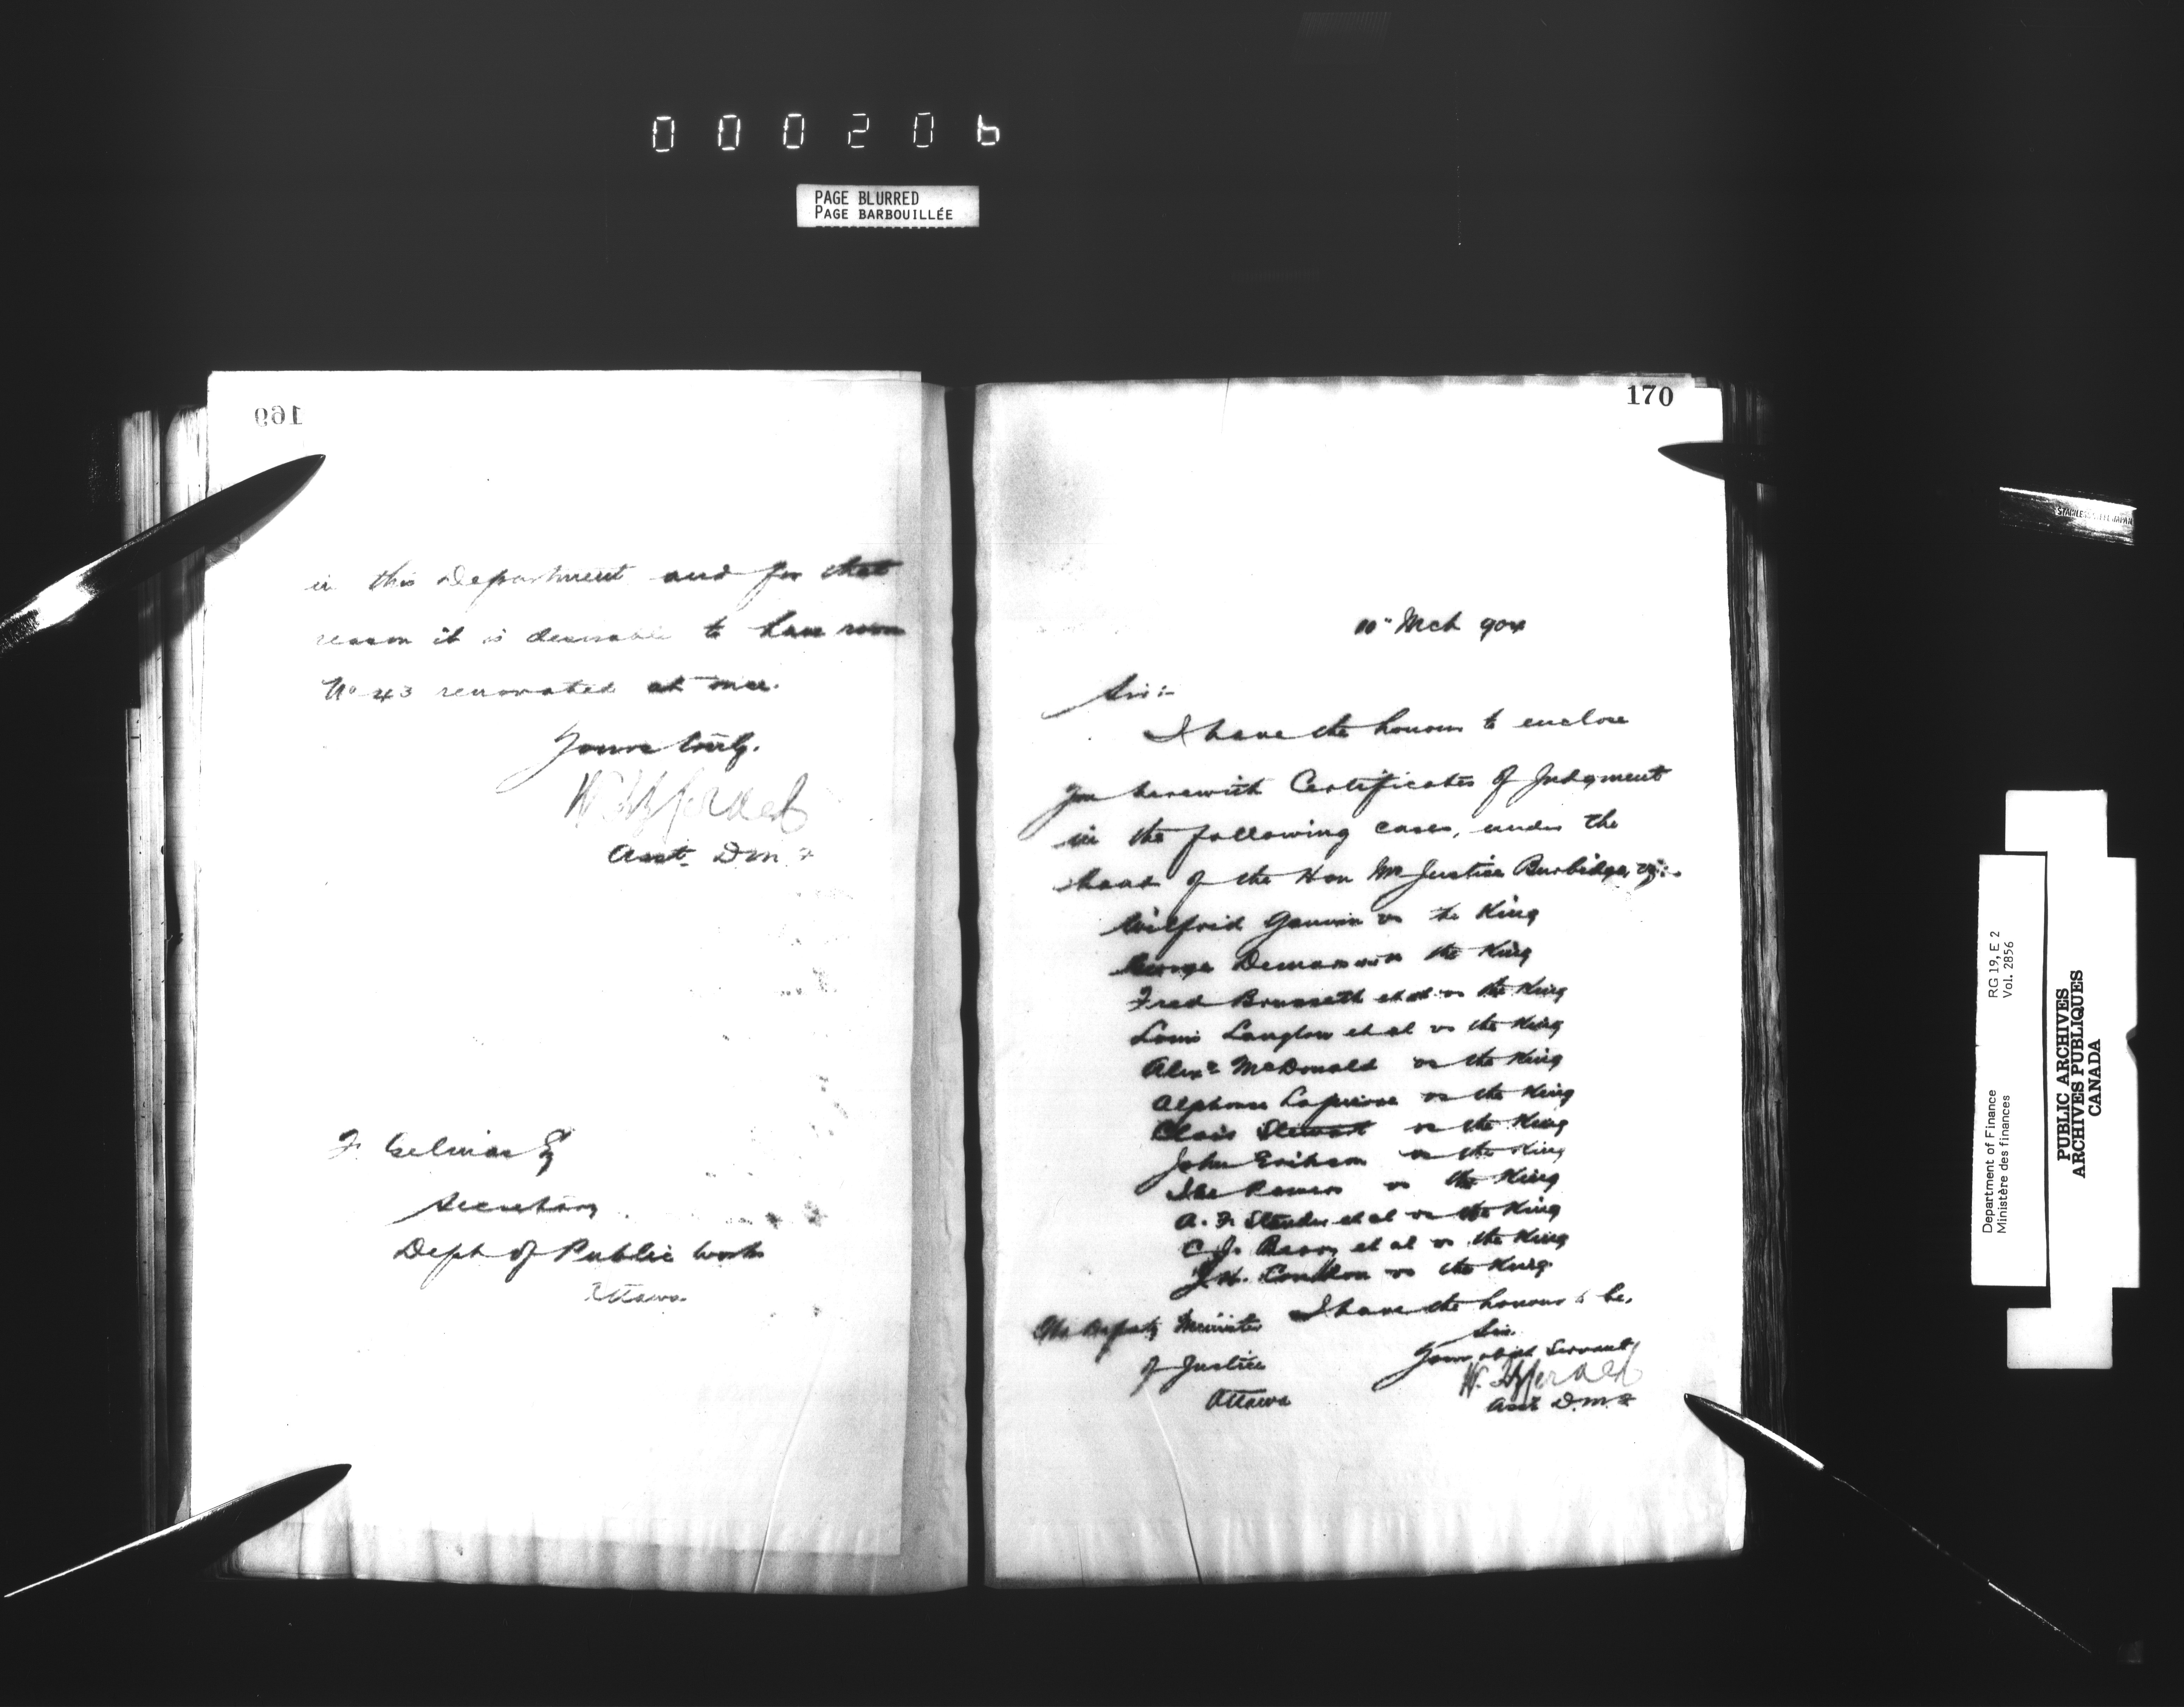 000206
PAGE BLURRED
PAGE BARBOUILLÉE
169
in this Department and for that
reason it is desirable to have room
No 43 renovated at once.
Yours truly.
Asst. D.M.F
F. Gelinas Esq
Secretary
Dept of Public Works
Ottawa
170
10" Mch 904
Sir:-
I have the honour to enclose
you herewith Certificates of Judgment
in the following cases, under the
hand of the Hon Mr Justice Burbidge, viz:-
Wilfrid Gauvin vs the King
George vs the King
Fred et al vs the King
Louis Langlois et al vs the King
Alexr McDonald vs the King
Alphonse vs the King
Stewart vs the King
John Erikson vs the King
vs the King
A. F. et al vs the King
C. J. et al vs the King
J. H. vs the King
I have the honour to be,
Sir
Your obdt Servant
Asst D.M.F
The Deputy Minister
of Justice
Ottawa
STAINLESS STEEL JAPAN
Department of Finance
Ministère des finances
RG 19, E 2
Vol. 2856
PUBLIC ARCHIVES
ARCHIVES PUBLIQUES
CANADA